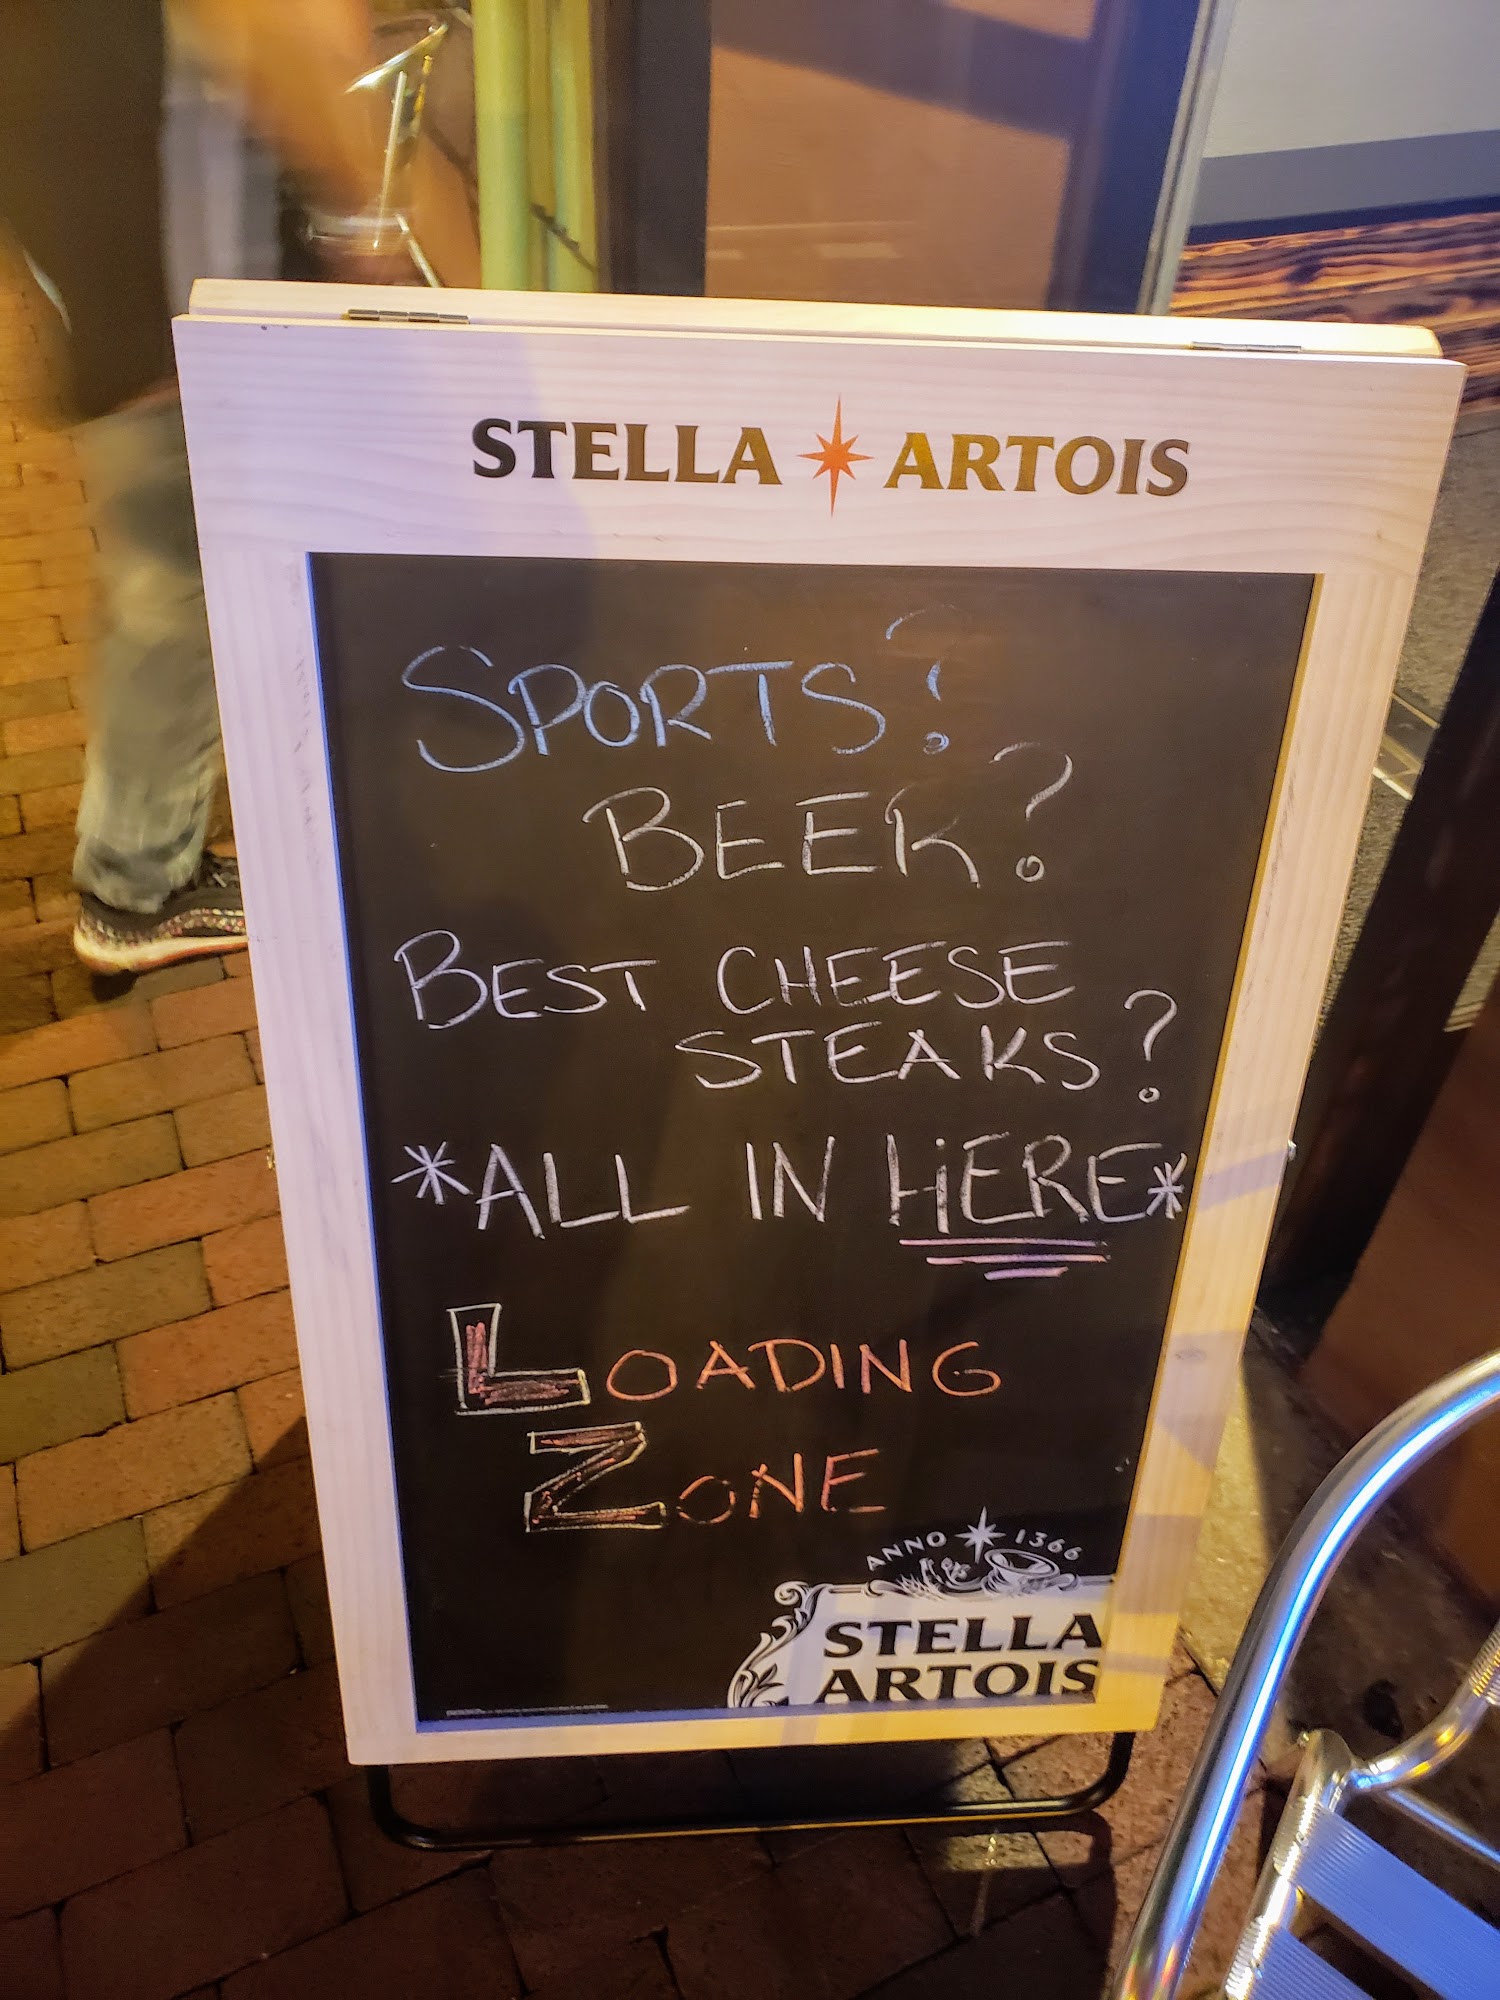 STELLA ARTOIS
SPORTS?
BEER?
BEST CHEESE
STEAKS?
*ALL IN HERE*
LOADING
ZONE
ANNO 1366
STELLA
ARTOIS